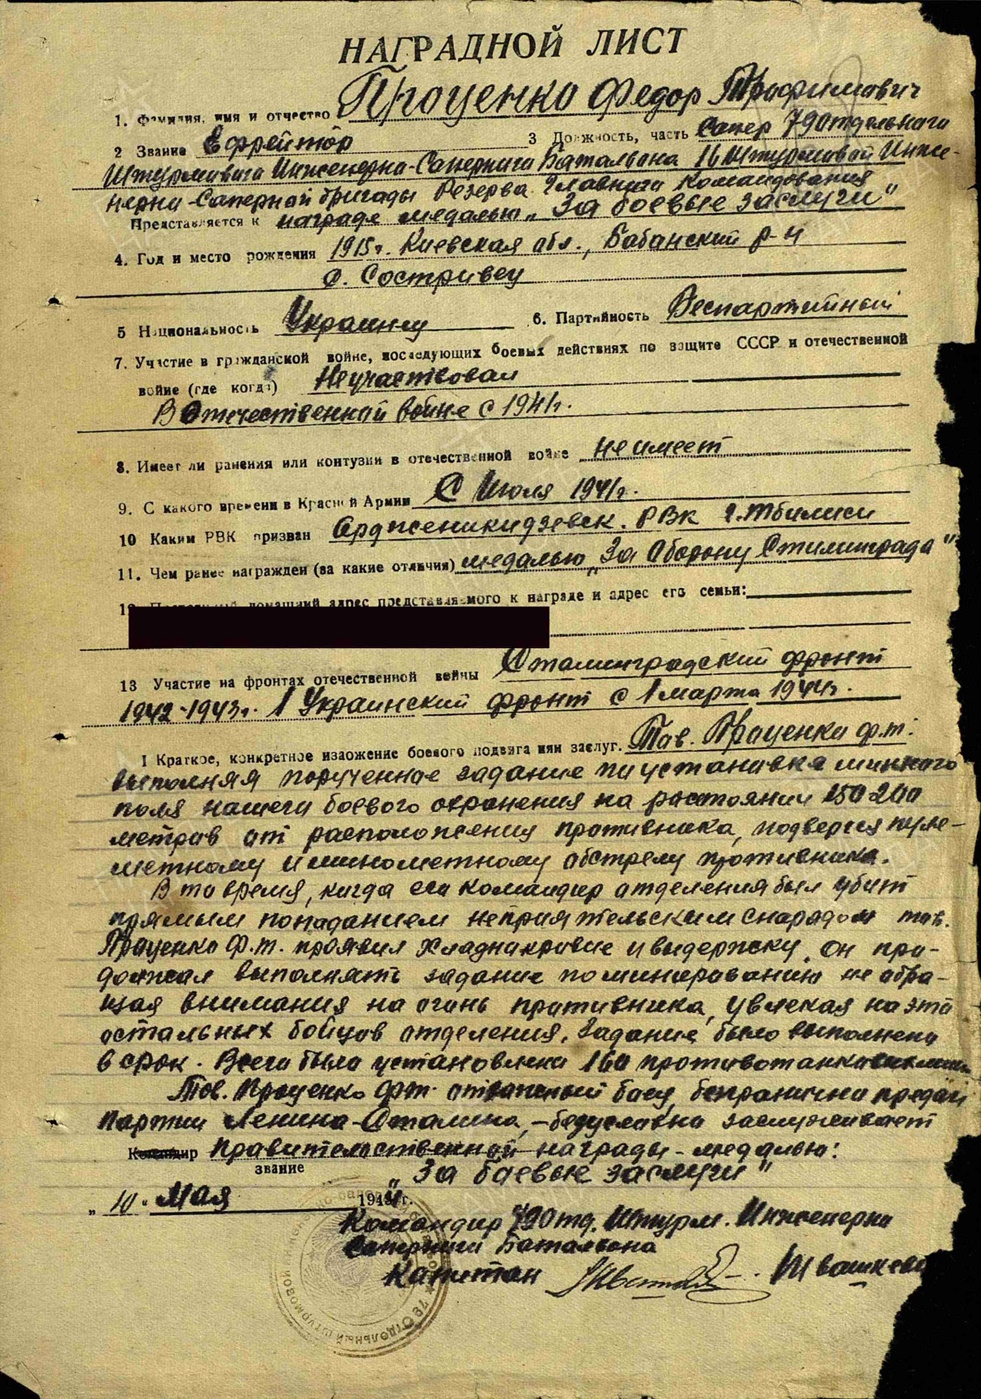 НАГРАДНОЙ ЛИСТ
1. Фамилия, имя и отчество Проценко Федор Трофимович
2 Звание Ефрейтор 3 Должность, часть Сапер 79 отдельного
Штурмового Инженерно-Саперного Батальона 16 Штурмовой Инже-
нерно-Саперной бригады Резерва Главного Командования
Представляется к награде медалью „За боевые заслуги"
4. Год и место рождения 1915г. Киевская обл., Бабанский р-н
с. Состривец
5 Национальность Украинец 6. Партийность Беспартийный
7. Участие в гражданской войне, последующих боевых действиях по защите СССР и отечественной
войне (где когда) Неучаствовал
В Отечественной войне с 1941г.
8. Имеет ли ранения или контузии в отечественной войне не имеет
9. С какого времени в Красной Армии С Июля 1941г.
10 Каким РВК призван Орджоникидзевск. РВК г. Тбилиси
11. Чем ранее награжден (за какие отличия) медалью „За Оборону Сталинграда"
домашний адрес представляемого к награде и адрес его семьи:
13 Участие на фронтах отечественной войны Сталинградский фронт
1942-1943г. 1 Украинский фронт с 1 марта 1944г.
1 Краткое, конкретное изложение боевого подвига или заслуг. Тов. Проценко Ф.Т.
выполняя порученное задание по установке минного
поля нашего боевого охранения на расстоянии 150-200
метров от расположения противника, подвергся пуле-
метному и минометному обстрелу противника.
В то время, когда его командир отделения был убит
прямым попаданием неприятельским снарядом тов.
Проценко Ф.Т. проявил хладнокровие и выдержку, он про-
должал выполнять задание по минированию не обра-
щая внимания на огонь противника, увлекая на это
остальных бойцов отделения. Задание было выполнено
в срок. Всего было установлено 160 противотанковых мин
Тов. Проценко Ф.Т. отважный боец, безгранично предан
Партии Ленина-Сталина, - безусловно заслуживает
Командир Правительственной награды - медалью:
звание „За боевые заслуги"
„10" Мая 1944г.
Командир 79 отд. Штурм. Инженерно
Саперного Батальона
Капитан Швашкево
79 ОТДЕЛЬНЫЙ ШТУРМОВОЙ